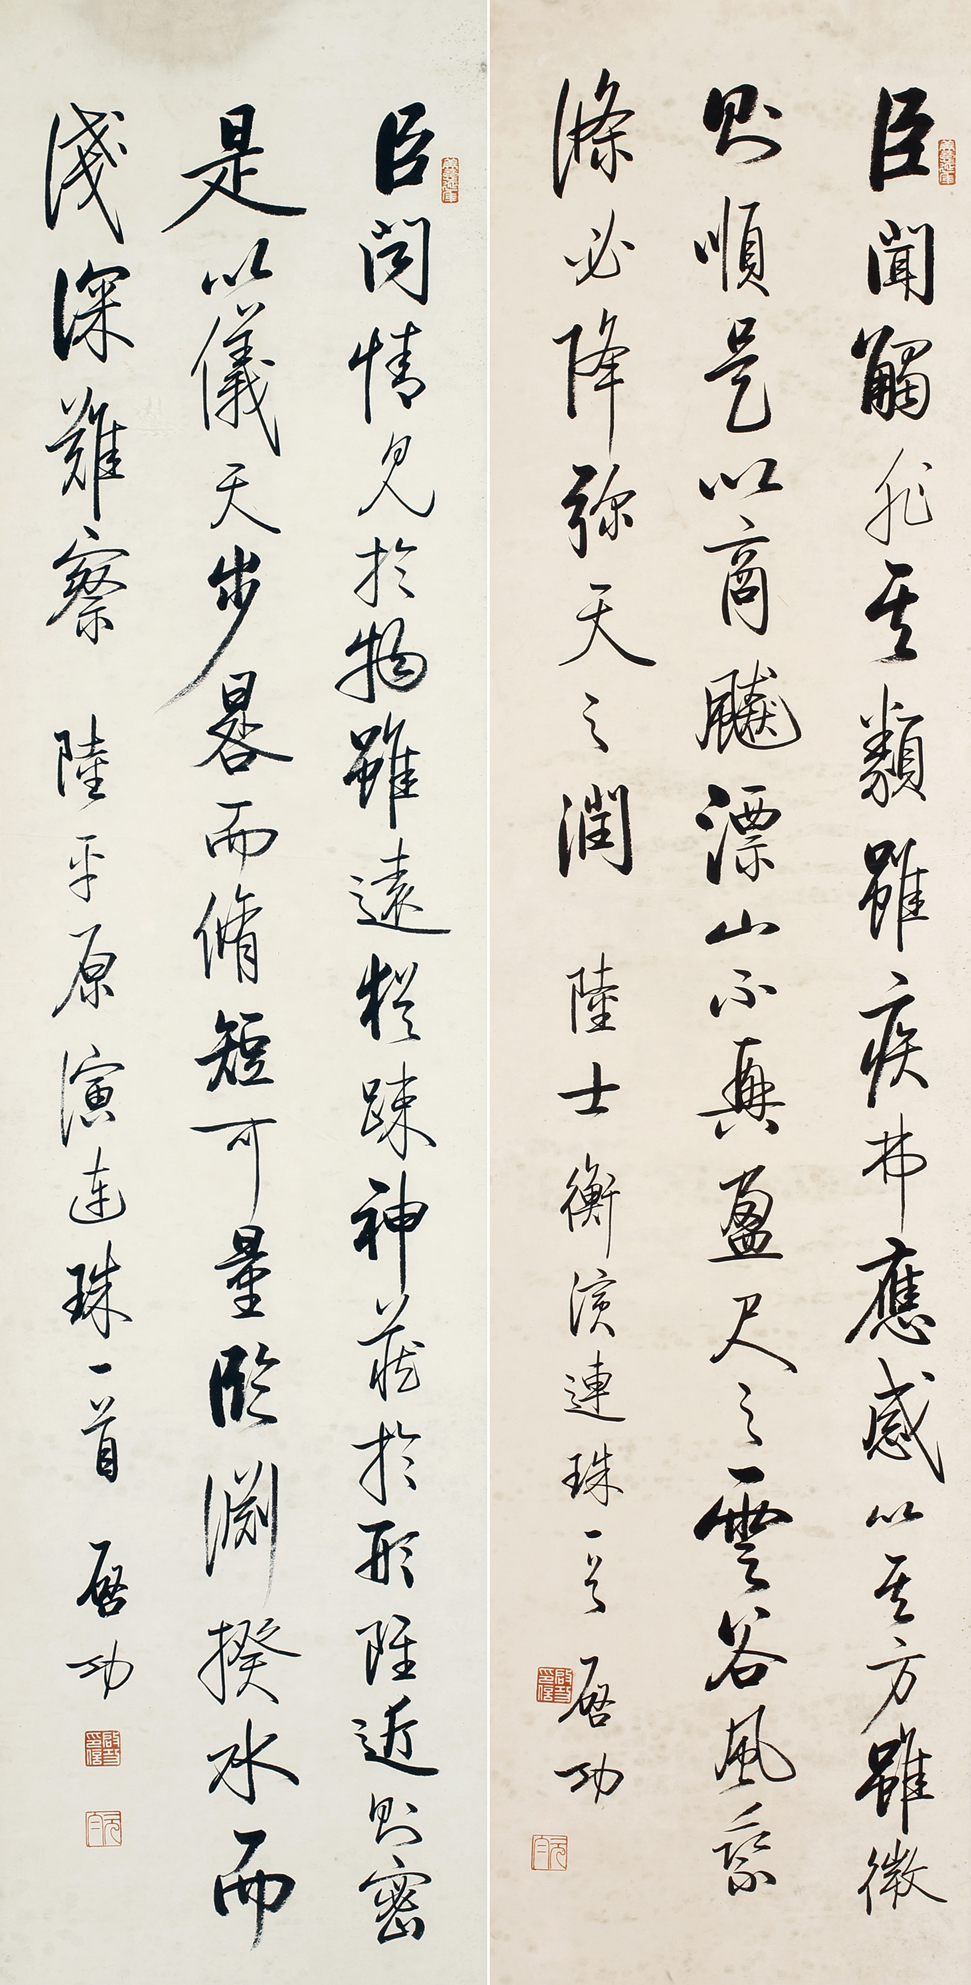 臣聞觸非其類雖疾弗應感以其方雖微
則順是以商飇漂山不興盈尺之雲谷風乘
條必降弥天之潤 陸士衡演連珠一首 启功
臣聞情見於物雖遠猶踈神藏於形雖近則密
是以儀天步晷而脩短可量臨淵揆水而
淺深難察 陸平原演連珠一首 启功